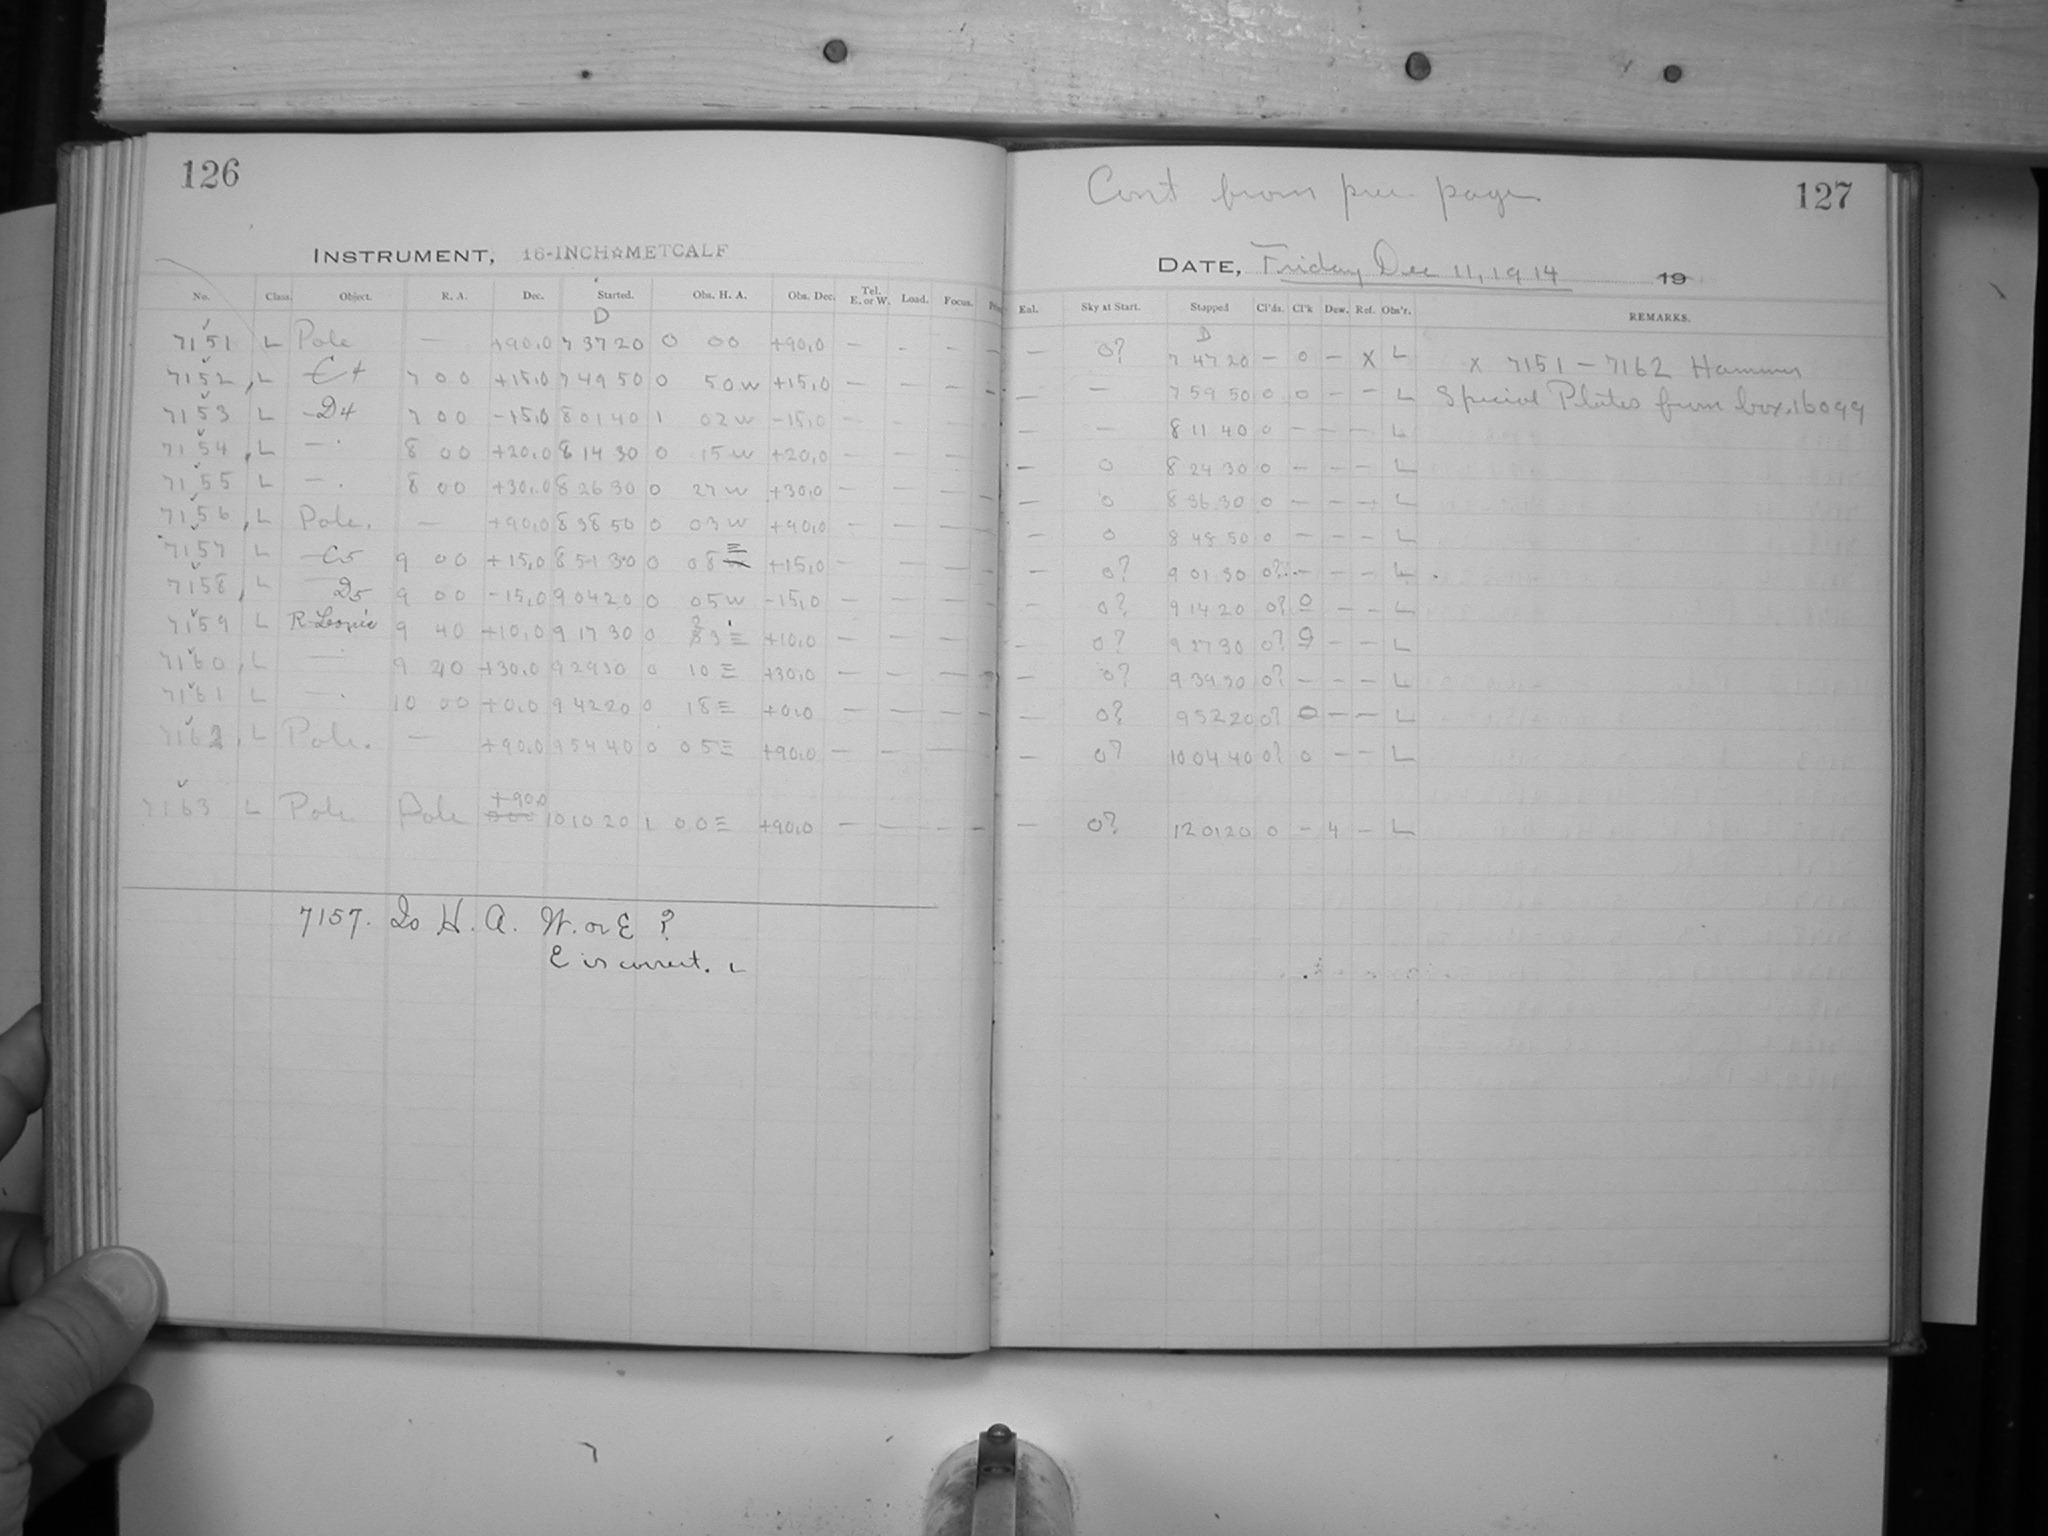 126
INSTRUMENT, 16-INCH☆METCALF
No. Class. Object. R. A. Dec. Started. Obs. H. A. Obs. Dec. Tel. E. or W. Load. Focus.
D
7151 L Pole — +90,0 7 37 20 0 00 +90,0 — — — —
7152 L C4 7 00 +15,0 7 49 50 0 50 W +15,0 — — — —
7153 L D4 7 00 -15,0 8 01 40 1 02 W -15,0 — — — —
7154 L — 8 00 +20,0 8 14 30 0 15 W +20,0 — — — —
7155 L — 8 00 +30,0 8 26 30 0 27 W +30,0 — — — —
7156 L Pole. — +90,0 8 38 50 0 03 W +90,0 — — — —
7157 L C5 9 00 +15,0 8 51 30 0 08 E +15,0 — — — —
7158 L D5 9 00 -15,0 9 04 20 0 05 W -15,0 — — — —
7159 L R Leonis 9 40 +10,0 9 17 30 0 23 E +10,0 — — — —
7160 L — 9 40 +30,0 9 29 30 0 10 E +30,0 — — — —
7161 L — 10 00 +0,0 9 42 20 0 18 E +0,0 — — — —
7162 L Pole. — +90,0 9 54 40 0 05 E +90,0 — — — —
7163 L Pole Pole +90,0 10 10 20 1 00 E +90,0 — — — —
7157. Is H. A. W. or E ?
E is correct. L
Cont from prev. page
127
DATE, Friday Dec 11, 1914 19
Enl. Sky at Start. Stopped Cl'ds. Cl'k Dew. Ref. Obs'r. REMARKS.
D
— 0? 7 47 20 — 0 — X L x 7151 – 7162 Hammer
— — 7 59 50 0 0 — — L Special Plates from box 16099
— — 8 11 40 0 — — — L
— 0 8 24 30 0 — — — L
— 0 8 36 30 0 — — — L
— 0 8 48 50 0 — — — L
— 0? 9 01 30 0? — — — L
— 0? 9 14 20 0? 0 — — L
— 0? 9 27 30 0? 0 — — L
— 0? 9 39 30 0? — — — L
— 0? 9 52 20 0? 0 — — L
— 0? 10 04 40 0? 0 — — L
— 0? 12 01 20 0 — 4 — L